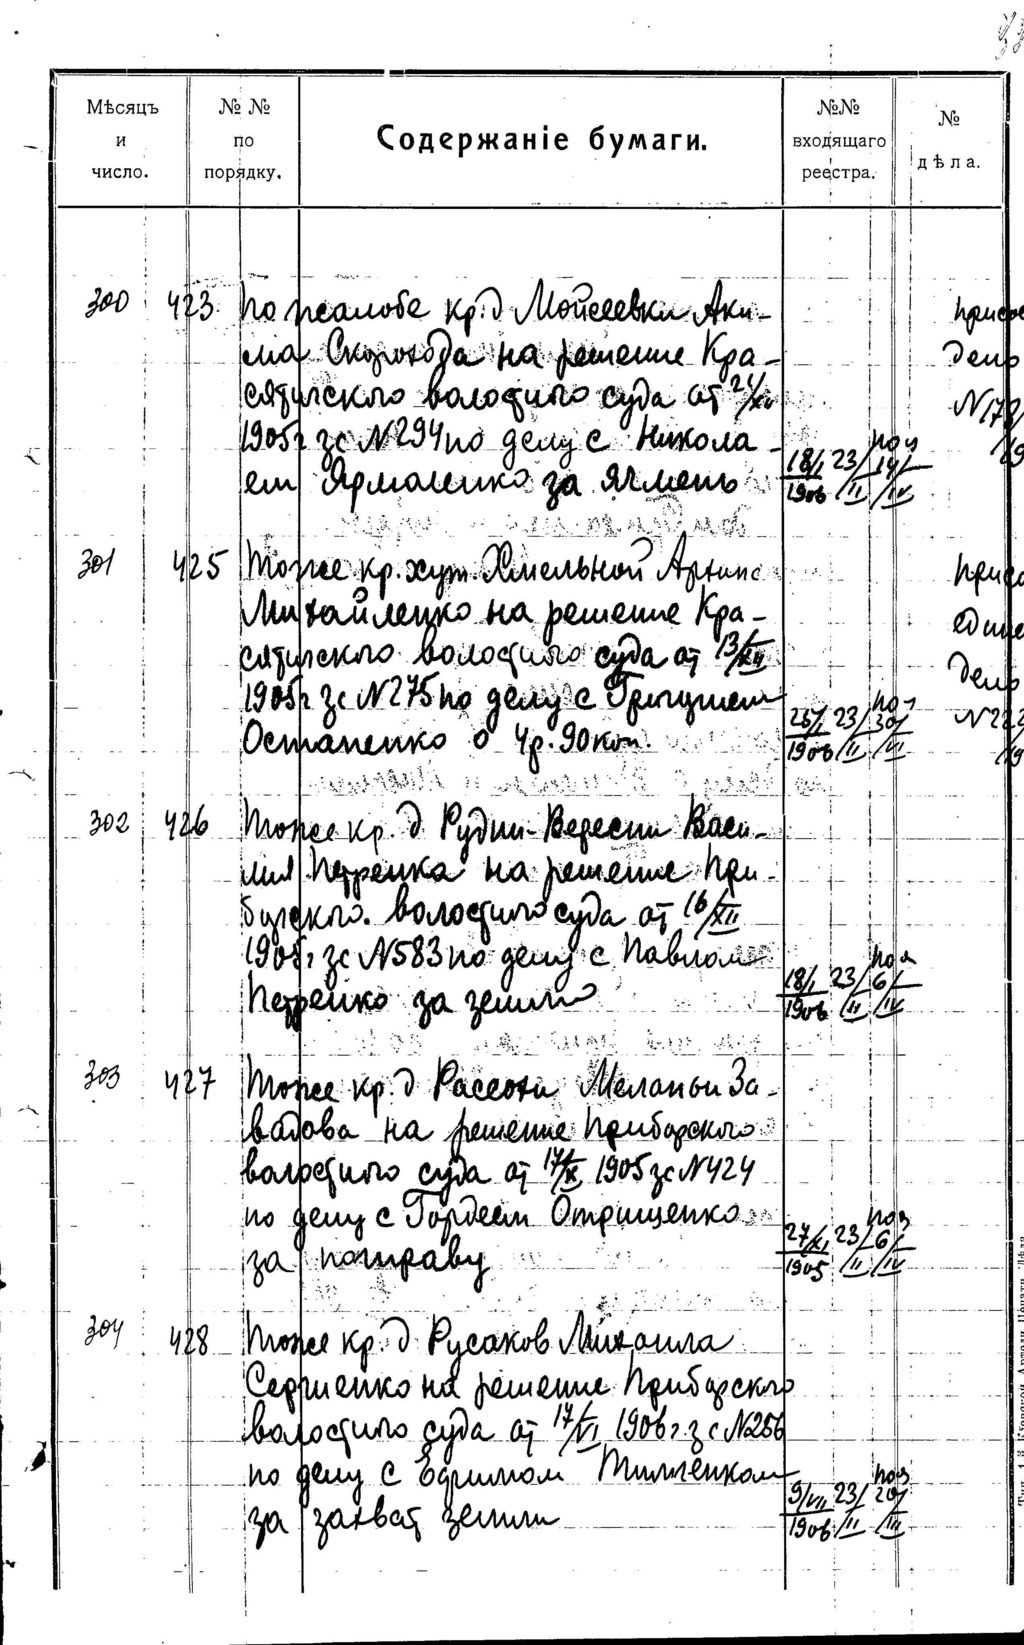 Мѣсяцъ и число.
№ № по порядку.
Содержаніе бумаги.
№№ входящаго реестра.
№ дѣла.
300 423 по жалобе кр. д Мойсеевки Аки-
ма Скорохода на решение Кра-
сятичского волостного суда от
1905г за N294 по делу с Никола-
ем Ярмоленко за ячмень
18/I 1906 23/II 14/IV
присое
дело
N178/
301 425 Тоже кр. хут. Хмельной Архипа
Михайленко на решение Кра-
сятичского волостного суда от 13/XII
1905г за N275 по делу с Григорием
Остапенко о 4р. 90коп.
23/II 30/VI
присо
едине
дело
N222
302 426 Тоже кр. д Рудни-Вересни Васи-
лия Петренка на решение При-
борского. волостного суда от 16/XII
1905г за N583 по делу с Павлом
Петренко за землю
18/I 1906 23/II 6/IV
303 427 Тоже кр. д Рассохи Меланьи За-
вадова на решение Приборского
волостного суда от 1905 за N424
по делу с Гордеем Отрищенко
за потраву
27/XI 1905 23/II 6/IV
304 428 Тоже кр. д Русаков Михаила
Сергиенко на решение Приборского
волостного суда от 17/VI 1906г за N256
по делу с Ефимом
за захват земли
9/VII 1906 23/II 20/III